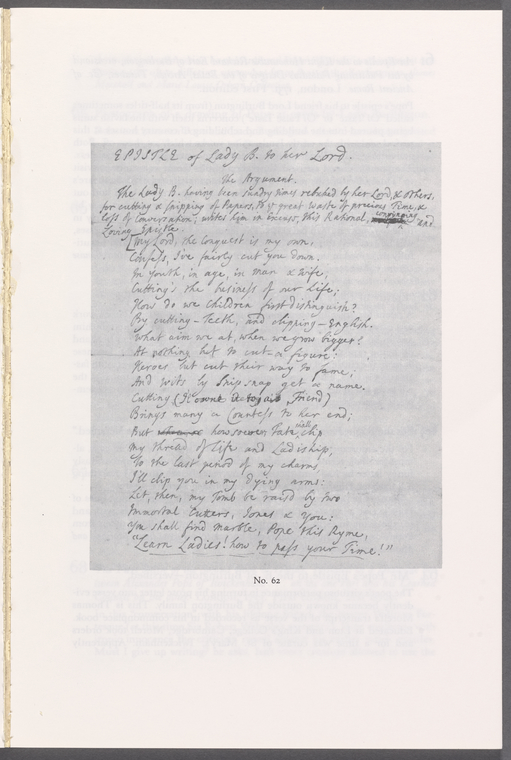 EPISTLE of Lady B. to her Lord.
The Argument.
The Lady B. having been sundry times rebuked by her Lord, & others,
for cutting & snipping of Papers, to ye great waste of precious Time, &
loss of Conversation; writes him in excuse, this Rational, convincing and
Loving Epistle.
My Lord, the conquest is my own,
Confess, I've fairly cut you down.
In youth, in age, in man & wife,
Cutting's the business of our Life;
How do we Children first distinguish?
By cutting-Teeth, and clipping-English.
What aim we at, when we grow bigger?
At nothing but to cut-a figure:
Heroes but cut their way to fame;
And wits by Snip snap get a name.
Cutting (Friend)
Brings many a Countess to her end;
But howsoever Fate wish clip
My thread of Life and Ladiship,
To the last period of my charms,
I'll clip you in my dying arms:
Let, then, my Tomb be rais'd by two
Immortal Cutters, Jones & You:
You shall find marble, Pope this Ryme,
"Learn Ladies! how to pass your Time!"
No. 62